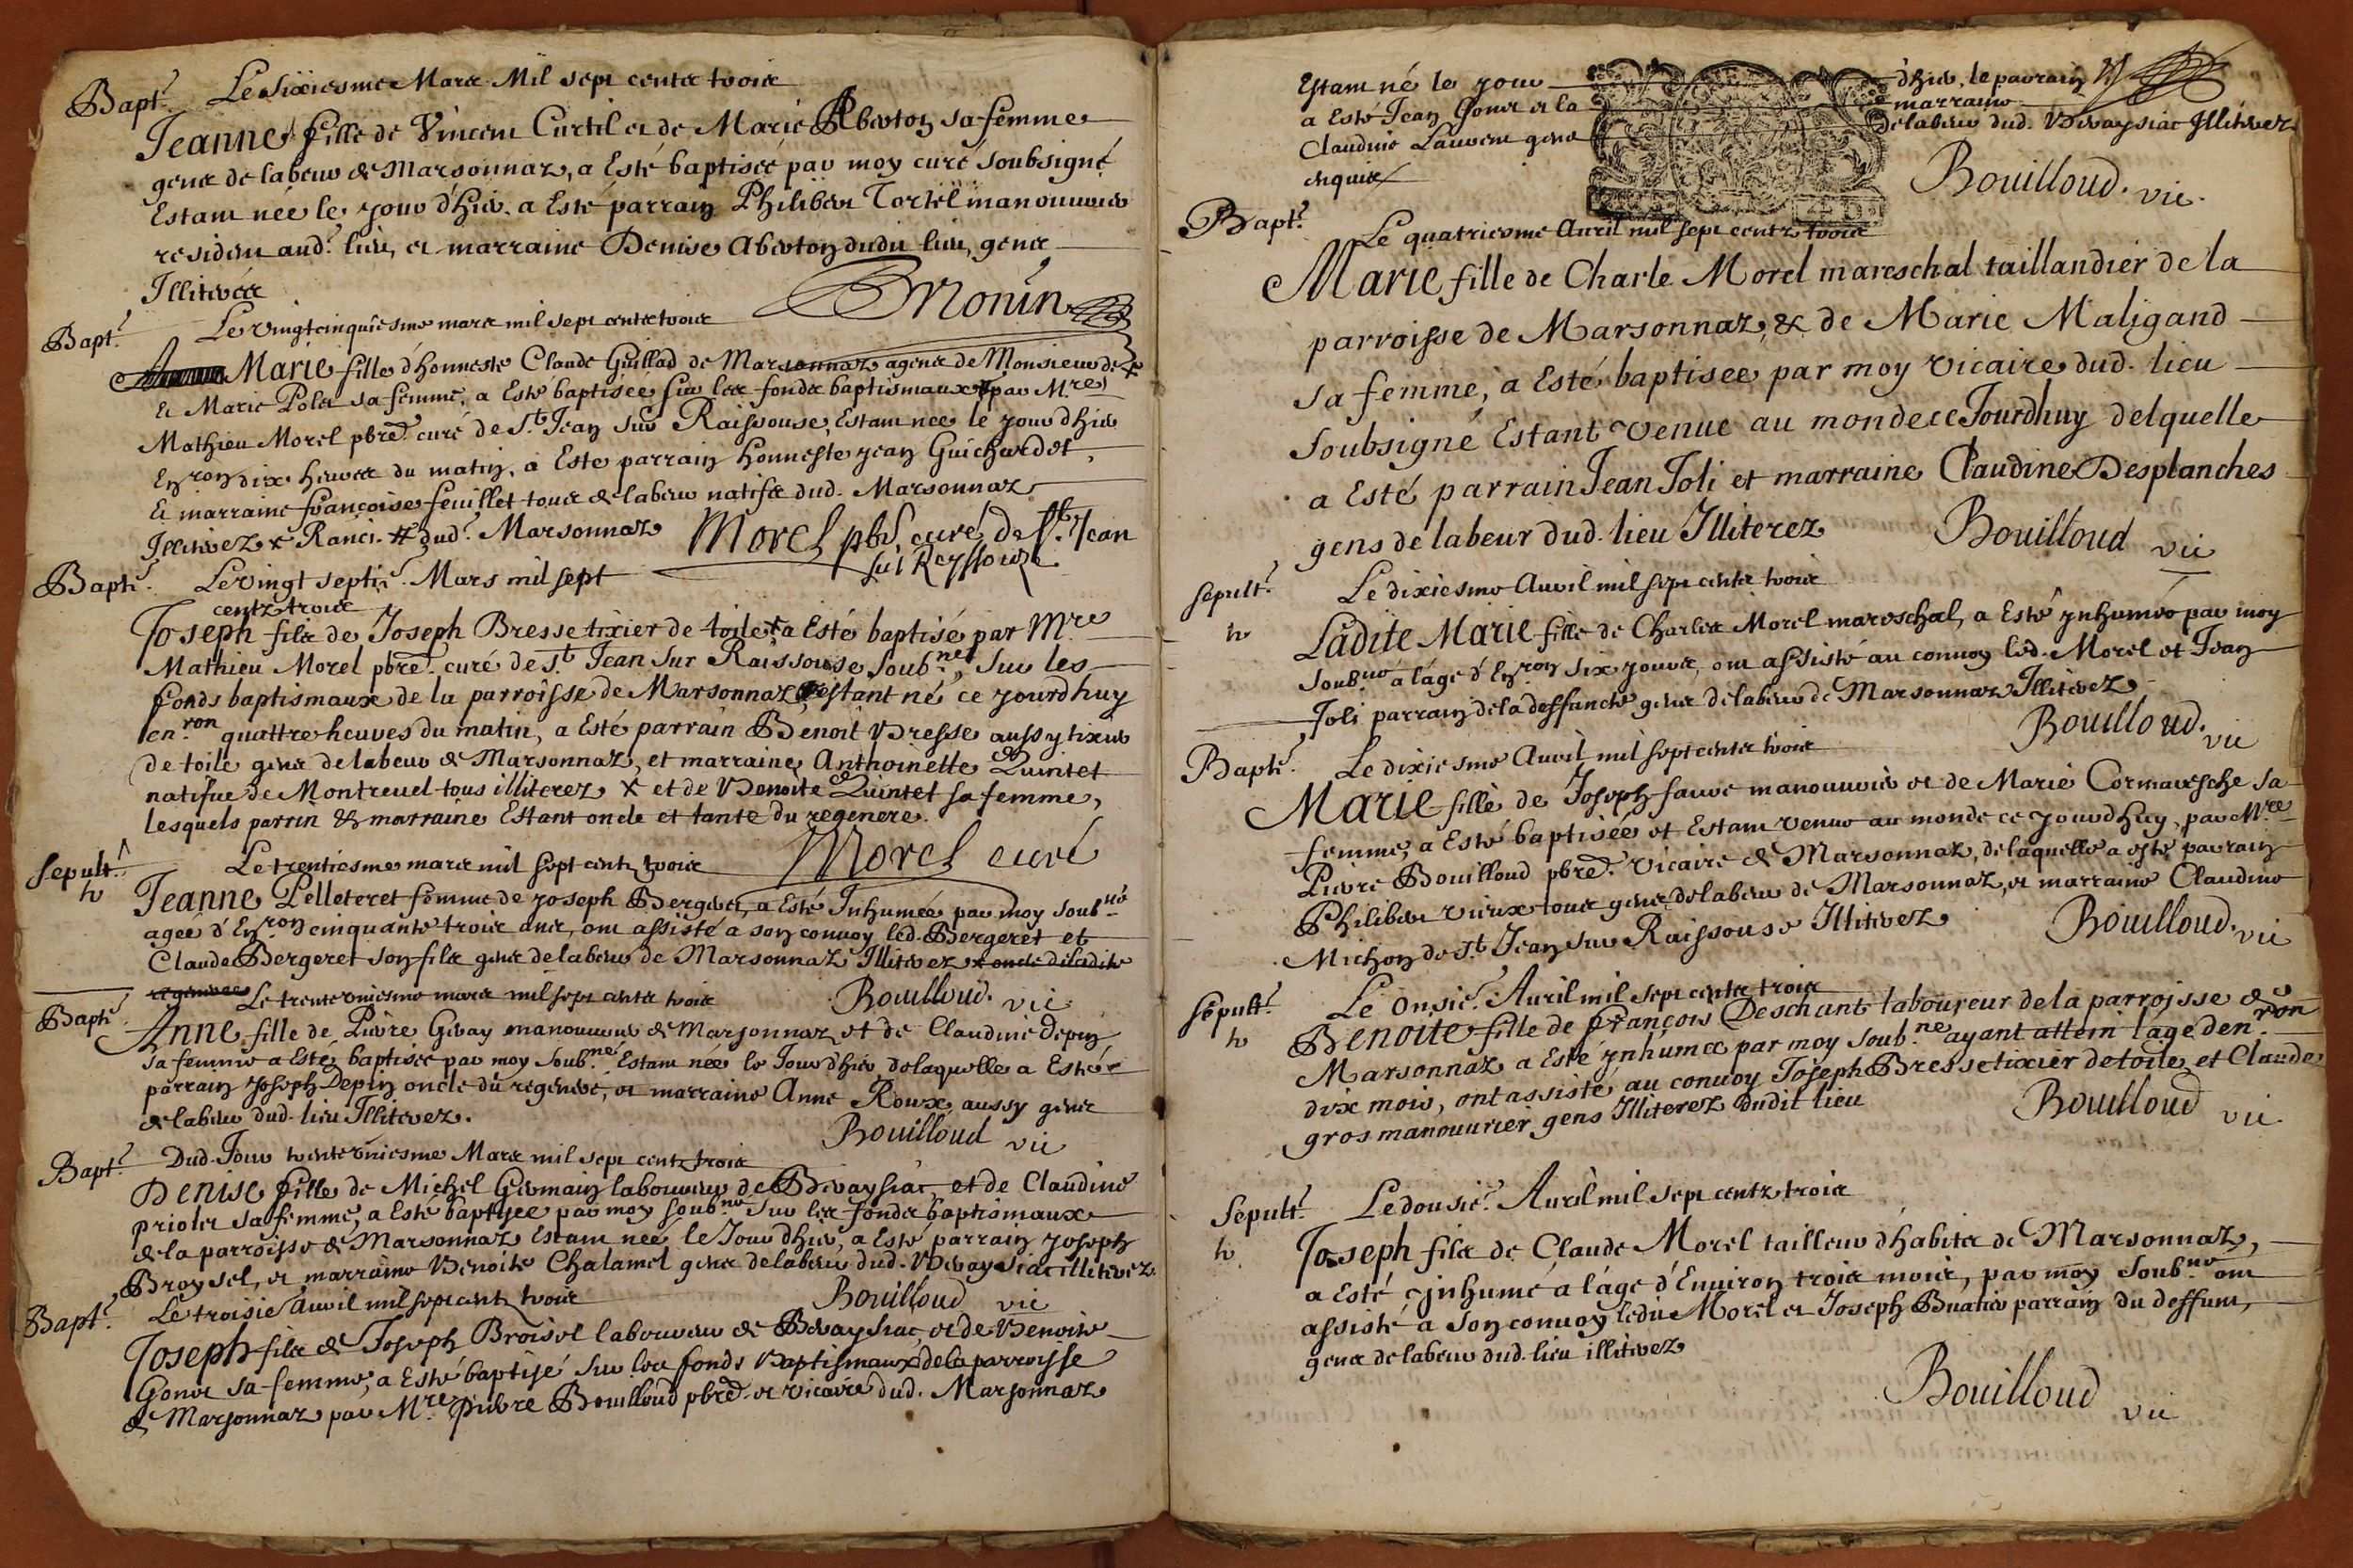 Bapt. Le sixiesme Mars Mil sept cents trois
Jeanne fille de Vincent Curtil et de Marie Aberton sa femme
gens de labeur de Marsonnaz, a Esté baptiseé par moy curé soubsigné
Estant née le jour d'hier. a Esté parrain Philibert Tortel manouurier
resident aud. lieu, et marraine Denise Aberton dudit lieu, gens
Illiterés
Monin
Bapt. Le vingtcinquiesme mars mil sept cents trois
Marie fille d'honneste Claude Guillad de Marsonnaz agens de Monsieur de x
Et Marie Poles sa femme, a Esté baptisée sur les fonds baptismaux # par M.re
Mathieu Morel pbre. curé de S.t Jean sur Raissouse, Estant née le jour d'hier
En.ron dix heures du matin, a Este parrain honneste Jean Guichardet,
Et marraine francoise feuillet tous de labeur natifs dud. Marsonnaz
Illiterez x Ranci. # dud. Marsonnaz
Morel pbr. curé de St. Jean
sur Reyssouze
Bapt. Le vingt septie. Mars mil sept
centz trois
Joseph fils de Joseph Bresse tixier de toile x a Esté baptisé par Mre
Mathieu Morel pbre. curé de S.t Jean sur Raissouse soub.né, sur les
fonds baptismaux de la parroisse de Marsonnaz estant né ce jourdhuy
en.ron quattre heures du matin, a Esté parrain Benoit Bresse aussy tixier
de toile gens de labeur de Marsonnaz, et marraine Anthoinette Quintet
natifue de Montreuel tous illiterez x et de Benoite Quintet sa femme,
lesquels parrin & marraine Estant oncle et tante du regenere.
Morel curé
Sepult. Le trentiesme mars mil sept cents trois
h Jeanne Pelleteret femme de Joseph Bergeret, a Esté Inhumée par moy soub.né
agée d'En.ron cinquante trois ans, ont assisté a son conuoy led. Bergeret et
Claude Bergeret son fils gens de labeur de Marsonnaz Illiterez x oncle de ladite
regeneree
Bouilloud. vic
Bapt. Le trenteuniesme mars mil sept cents trois
Anne fille de Pierre Giray manouurier de Marsonnaz et de Claudine Depin
sa femme a Esté baptisée par moy soub.né Estant née le Jour d'hier de laquelle a Esté
parrain Joseph Depin oncle du regeneré, et marraine Anne Roux, aussy gens
de labeur dud. lieu Illiterez.
Bouilloud vic
Bapt. Dud. Jour trenteuniesme Mars mil sept cents trois
Denise fille de Michel Germain laboureur de Bereysiac et de Claudine
priolet sa femme, a Esté baptisée par moy soub.né sur les fonds baptismaux
de la parroisse de Marsonnaz Estant née le Jour d'hier, a Esté parrain Joseph
Broysel, et marraine Benoite Chalamel gens de labeur dud. Bereysiac illiterez.
Bouilloud vic
Bapt. Le troisie. Auril mil sept cents trois
Joseph fils de Joseph Broisel laboureur de Bereysiac, et de Benoite
Gonet sa femme, a Esté baptisé sur les fonds Baptismaux de la parroisse
de Marsonnaz par M.re Pierre Bouilloud pbre. et vicaire dud. Marsonnaz
Estant né le jour d'hier, le parrain
a Esté Jean Gonet et la marraine
Claudine Laurent gens de labeur dud. Bereysiac Illiterez
enquis
Bouilloud. vic.
Bapt. Le quatriesme Auril mil sept centz trois
Marie fille de Charle Morel mareschal taillandier de la
parroisse de Marsonnaz, & de Marie Maligand
sa femme, a Esté baptisee par moy vicaire dud. lieu
soubsigné Estant venue au monde ce Jourdhuy delquelle
a Esté parrain Jean Joli et marraine Claudine Desplanches
gens de labeur dud. lieu Illiterez
Bouilloud vic
sepult. Le dixiesme Auril mil sept cents trois
h Ladite Marie fille de Charles Morel mareschal, a Esté ynhumée par moy
soub.né a l'age d'En.ron six jours, ont assisté au conuoy led. Morel et Jean
Joli parrain de la deffuncte gens de labeur de Marsonnaz Illiterez
Bouilloud. vic
Bapt. Le dixiesme Auril mil sept cents trois
Marie fille de Joseph faure manouurier et de Marie Cormaresche sa
femme, a Esté baptisée et Estant venue au monde ce jourdhuy, par M.re
Pierre Bouilloud pbre. vicaire de Marsonnaz, de laquelle a esté parrain
Philibert vieux tous gens de labeur de Marsonnaz, et marraine Claudine
Michon de S.t Jean sur Raissouse Illiterez
Bouilloud. vic
sepult. Le Onsie. Auril mil sept cents trois
h Benoite fille de François Deschant laboureur de la parroisse de
Marsonnaz a Esté ynhumée par moy soub.né ayant attein l'age den.ron
dix mois, ont assisté au conuoy Joseph Bresse tixier de toile, et Claude
gros manouurier gens Illiterez dudit lieu
Bouilloud vic.
Sepult. Le dousie. Auril mil sept centz trois
h. Joseph fils de Claude Morel tailleur d'habits de Marsonnaz,
a Esté ynhumé a l'age d'Enuiron trois mois, par moy soub.né ont
assisté a son conuoy ledit Morel et Joseph Buatier parrain du deffunt,
gens de labeur dud. lieu illiterez
Bouilloud vic